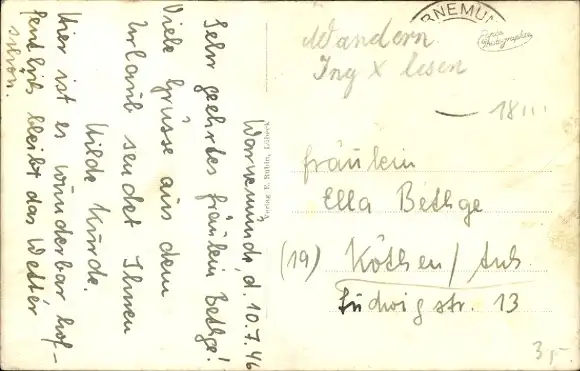 Warnemünde, d. 10.7.46
Sehr geehrtes Fräulein Bethge!
Viele Grüsse aus dem
Urlaub sendet Ihnen
Hilde Kunde.
Hier ist es wunderbar hof-
fentlich bleibt das Wetter
schön.
Verlag E. Rubin, Lübeck
RNEMÜN
Wandern
Ing X lesen
18
Fräulein
Ella Bethge
(19) Köthen / Anh
Ludwigstr. 13
3,-